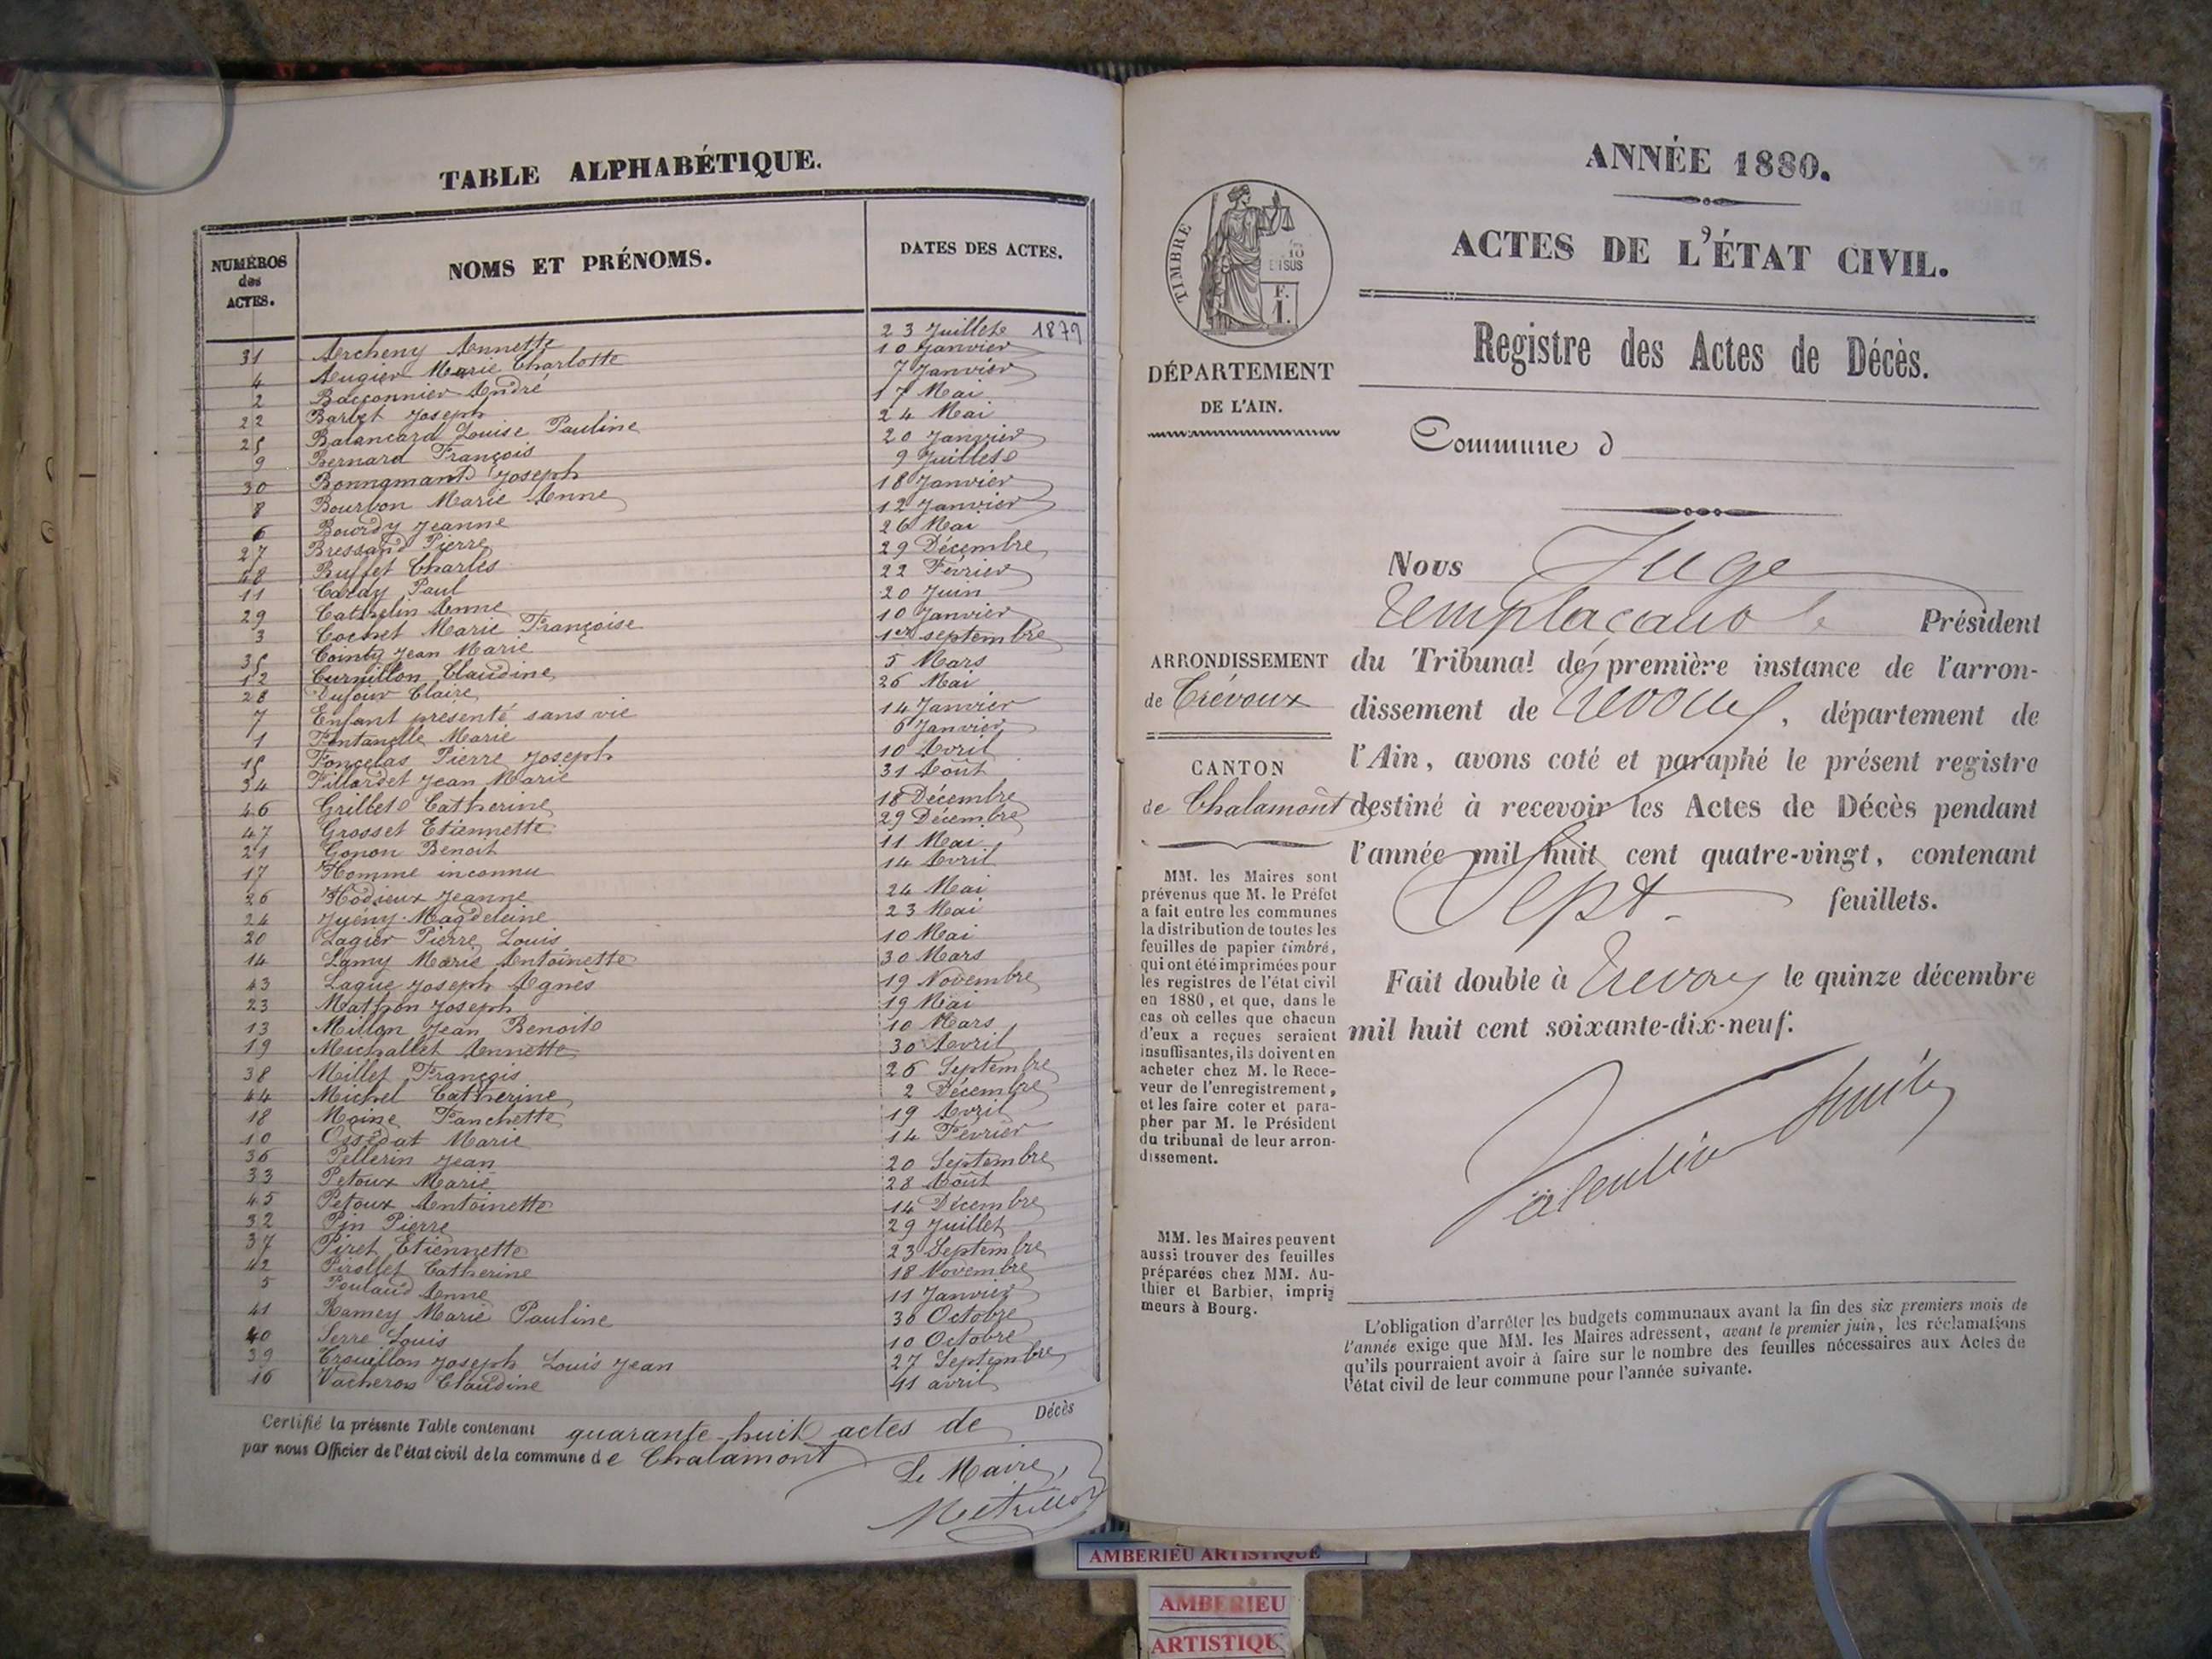 TABLE ALPHABÉTIQUE.
NUMÉROS des ACTES. NOMS ET PRÉNOMS. DATES DES ACTES.
31 Archeny Annette 23 Juillet 1879
4 Augier Marie Charlotte 10 Janvier
2 Bacconnier André 7 Janvier
22 Barbet Joseph 17 Mai
25 Balancard Louise Pauline 24 Mai
9 Bernard François 20 Janvier
30 Joseph 9 Juillet
8 Bourbon Marie Anne 18 Janvier
6 Bourdy Jeanne 12 Janvier
27 Bressand Pierre 26 Mai
48 Buffet Charles 29 Décembre
11 Carday Paul 22 Février
29 Cathelin Anne 20 Juin
3 Cochet Marie Françoise 10 Janvier
35 Cointy Jean Marie 1er septembre
12 Curnillon Claudine 5 Mars
28 Dufour Claire 26 Mai
7 Enfant présenté sans vie 14 Janvier
1 Fontanelle Marie 6 Janvier
15 Foncelas Pierre Joseph 10 Avril
34 Fillardet Jean Marie 31 Août
46 Grillet Catherine 18 Décembre
47 Grosset Etiennette 29 Décembre
21 Gonon Benoit 11 Mai
17 Homme inconnu 14 Avril
26 Hodieux Jeanne 24 Mai
24 Juény Magdeleine 23 Mai
20 Lagier Pierre Louis 10 Mai
14 Lamy Marie Antoinette 30 Mars
43 Lague Joseph Agnès 19 Novembre
23 Mathon Joseph 19 Mai
13 Millon Jean Benoit 10 Mars
19 Michallet Annette 30 Avril
38 Millet François 26 Septembre
44 Michel Catherine 2 Décembre
18 Moine Fanchette 19 Avril
10 Ossedat Marie 14 Février
36 Pellerin Jean 20 Septembre
33 Petoux Marie 28 Août
45 Petoux Antoinette 14 Décembre
32 Pin Pierre 29 Juillet
37 Piret Etiennette 23 Septembre
42 Pirollet Catherine 18 Novembre
5 Poulaud Anne 11 Janvier
41 Ramey Marie Pauline 30 Octobre
40 Serre Louis 10 Octobre
39 Trouillon Joseph Louis Jean 27 Septembre
16 Vacheron Claudine 11 avril
Certifié la présente Table contenant quarante-huit actes de Décès
par nous Officier de l'état civil de la commune de Chalamont
Le Maire,
Metrillot
ANNÉE 1880.
ACTES DE L'ÉTAT CIVIL.
Registre des Actes de Décès.
TIMBRE
10
EN SUS
F.
1.
DÉPARTEMENT
DE L'AIN.
ARRONDISSEMENT
de Trévoux
CANTON
de Chalamont
MM. les Maires sont
prévenus que M. le Préfet
a fait entre les communes
la distribution de toutes les
feuilles de papier timbré,
qui ont été imprimées pour
les registres de l'état civil
en 1880, et que, dans le
cas où celles que chacun
d'eux a reçues seraient
insuffisantes, ils doivent en
acheter chez M. le Rece-
veur de l'enregistrement,
et les faire coter et para-
pher par M. le Président
du tribunal de leur arron-
dissement.
MM. les Maires peuvent
aussi trouver des feuilles
préparées chez MM. Au-
thier et Barbier, impri-
meurs à Bourg.
Commune d
Nous Juge
remplaçant le Président
du Tribunal de première instance de l'arron-
dissement de Trevoux, département de
l'Ain, avons coté et paraphé le présent registre
destiné à recevoir les Actes de Décès pendant
l'année mil huit cent quatre-vingt, contenant
Sept feuillets.
Fait double à Trevoux le quinze décembre
mil huit cent soixante-dix-neuf.
Valentin
L'obligation d'arrêter les budgets communaux avant la fin des six premiers mois de
l'année exige que MM. les Maires adressent, avant le premier juin, les réclamations
qu'ils pourraient avoir à faire sur le nombre des feuilles nécessaires aux Actes de
l'état civil de leur commune pour l'année suivante.
AMBERIEU ARTISTIQUE
AMBERIEU
ARTISTIQU